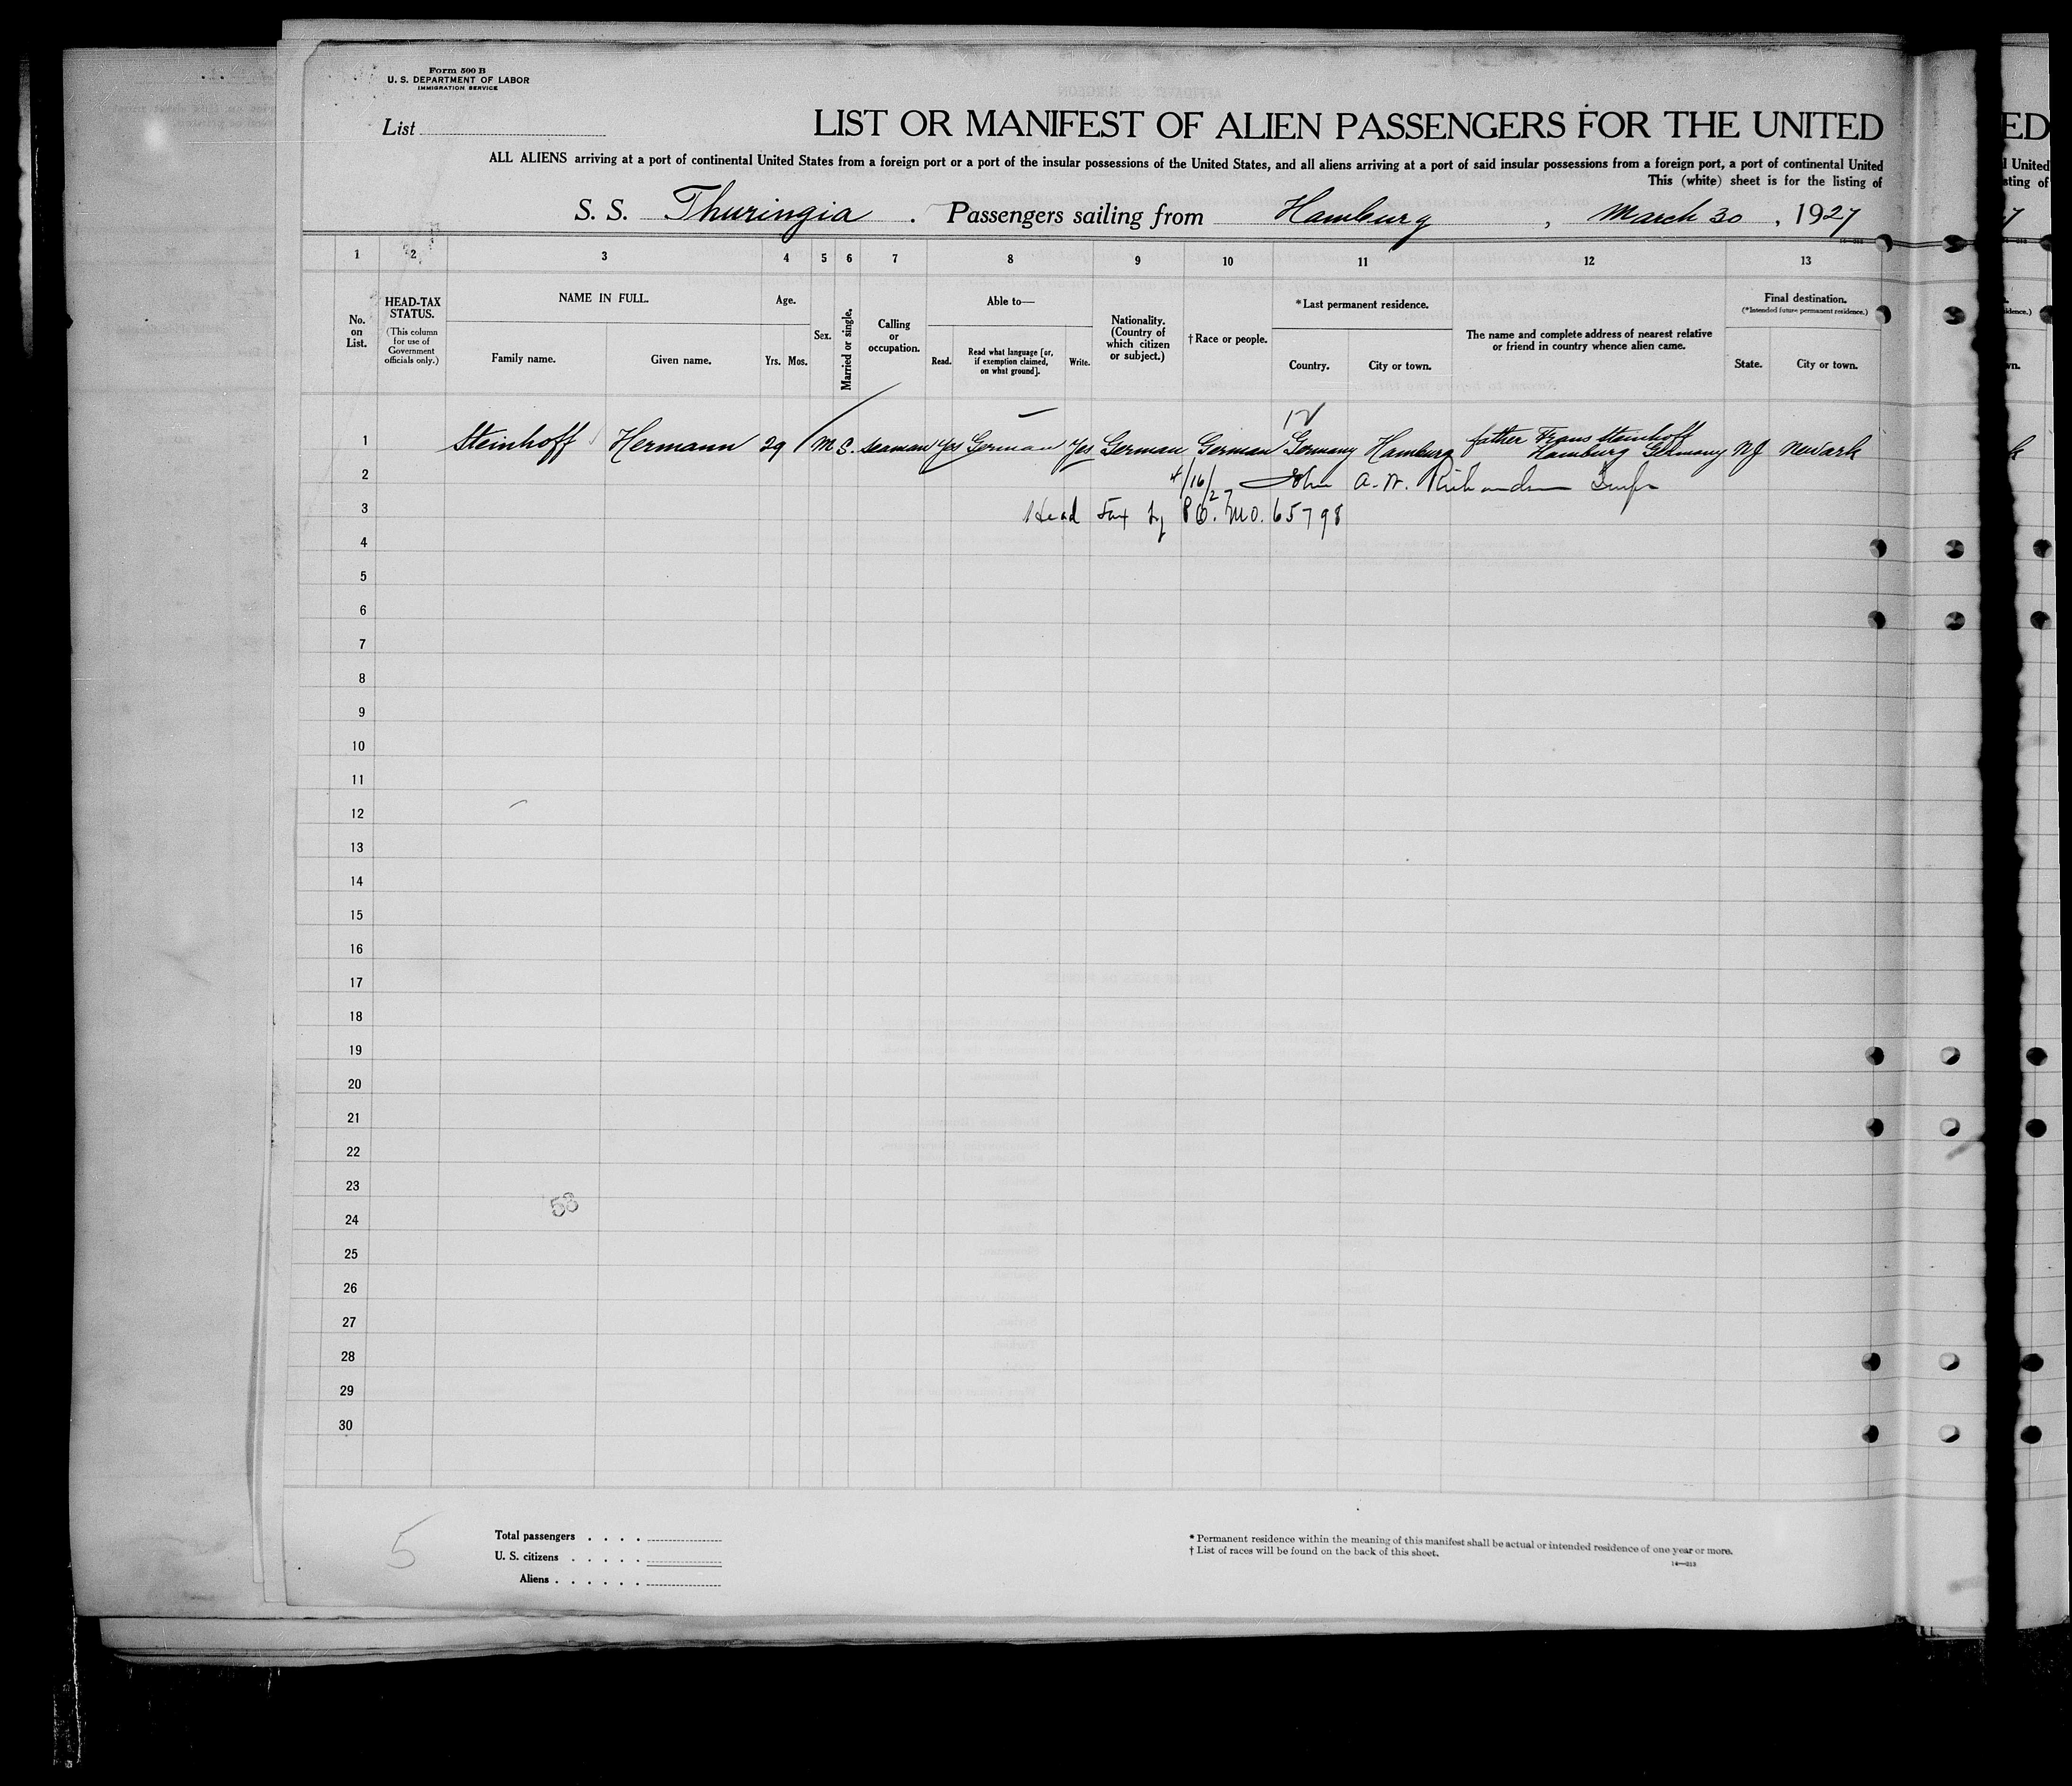 Form 500 B
U. S. DEPARTMENT OF LABOR
IMMIGRATION SERVICE
List
LIST OR MANIFEST OF ALIEN PASSENGERS FOR THE UNITED
ALL ALIENS arriving at a port of continental United States from a foreign port or a port of the insular possessions of the United States, and all aliens arriving at a port of said insular possessions from a foreign port, a port of continental United
This (white) sheet is for the listing of
S. S. Thuringia . Passengers sailing from Hamburg , March 30 , 1927
1 2 3 4 5 6 7 8 9 10 11 12 13
No. on List.
HEAD-TAX STATUS.
(This column for use of Government officials only.)
NAME IN FULL.
Family name. Given name.
Age.
Yrs. Mos.
Sex.
Married or single.
Calling or occupation.
Able to—
Read. Read what language [or, if exemption claimed, on what ground]. Write.
Nationality. (Country of which citizen or subject.)
†Race or people.
*Last permanent residence.
Country. City or town.
The name and complete address of nearest relative or friend in country whence alien came.
Final destination.
(*Intended future permanent residence.)
State. City or town.
1 Steinhoff Hermann 29 M S. seaman Yes German Yes German German Germany Hamburg father Frans Steinhoff Hamburg Germany NJ Newark
2 4/16/27 John A. W.
3 Head Tax by P.O. M.O. 65798
4
5
6
7
8
9
10
11
12
13
14
15
16
17
18
19
20
21
22
23
53
24
25
26
27
28
29
30
5
Total passengers . . . .
U. S. citizens . . . . .
Aliens . . . . . .
* Permanent residence within the meaning of this manifest shall be actual or intended residence of one year or more.
† List of races will be found on the back of this sheet.
14—213
ED
l United
sting of
7